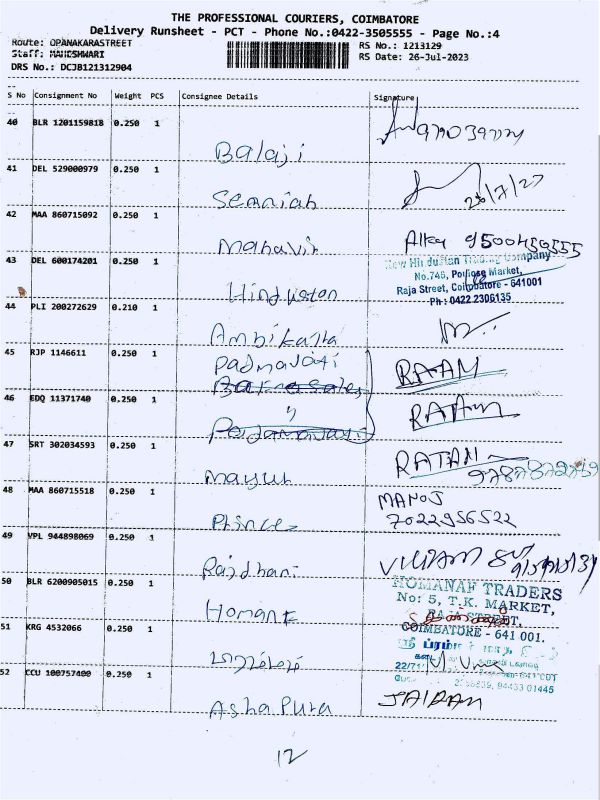 THE PROFESSIONAL COURIERS, COIMBATORE
Delivery Runsheet - PCT - Phone No.:0422-3505555 - Page No.:4
Route: OPANAKARASTREET RS No.: 1213129
Staff: MAHESHWARI RS Date: 26-Jul-2023
DRS No.: DCJB121312904
S No Consignment No Weight PCS Consignee Details Signature
40 BLR 1201159818 0.250 1
Balaji
41 DEL 529000979 0.250 1
26/7/23
42 MAA 860715092 0.250 1
Mahavir 9500450555
43 DEL 600174201 0.250 1
New Hindustan Trading Company
No.746, Porlose Market,
Raja Street, Coimbatore - 641001
Hinduston Ph : 0422 2306135
44 PLI 200272629 0.210 1
Ambikajla
45 RJP 1146611 0.250 1
Padmavati RATAN
46 EDQ 11371740 0.250 1
RATAN
47 SRT 302034593 0.250 1
RATAN
Mayur
48 MAA 860715518 0.250 1 MANOJ
Princes 7022956522
49 VPL 944898069 0.250 1
Rajdhani
50 BLR 6200905015 0.250 1 HOMANAF TRADERS
No: 5, T.K. MARKET,
Homant RAJA STREET,
51 KRG 4532066 0.250 1 COIMBATORE - 641 001.
52 CCU 100757400 0.250 1
94433 01445
Asha Pura JAIRAM
12